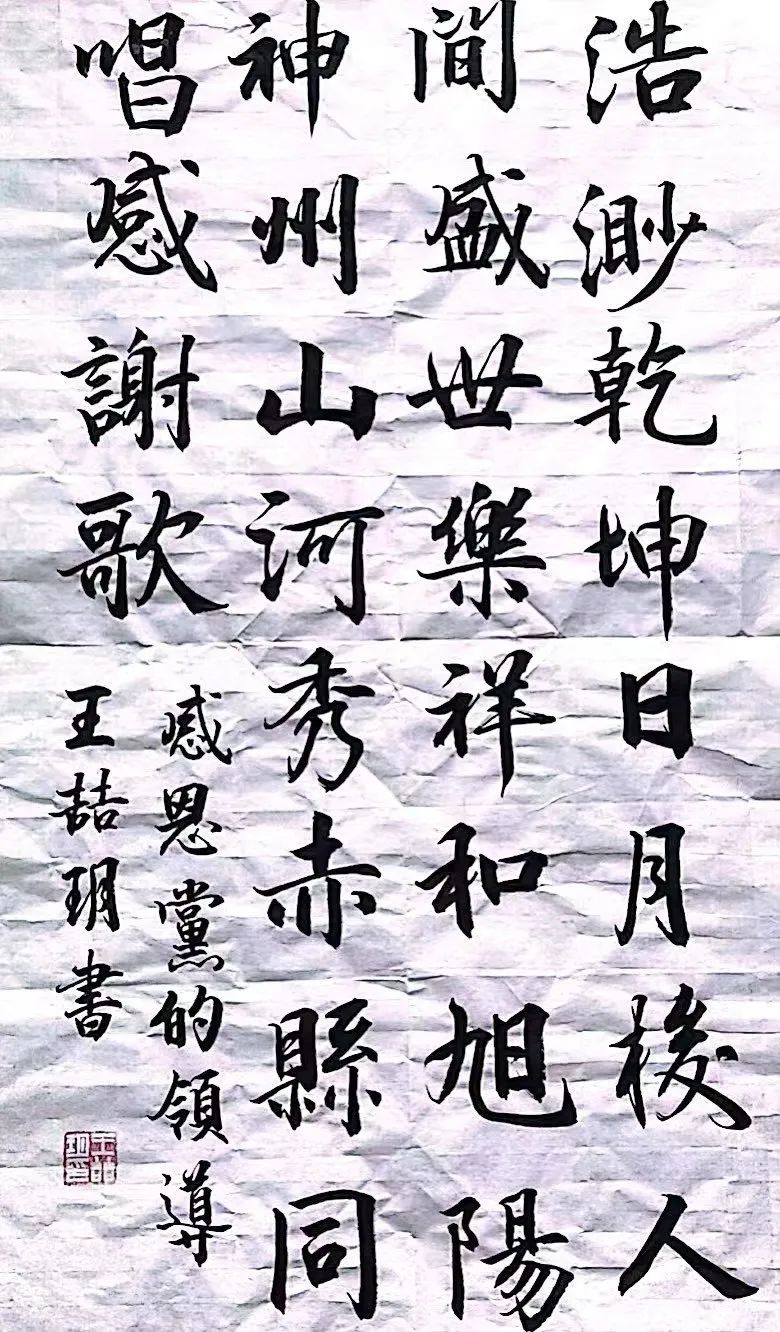 浩渺乾坤日月梭人
間盛世樂祥和旭陽
神州山河秀赤縣同
唱感謝歌
感恩黨的領導
王喆玥書